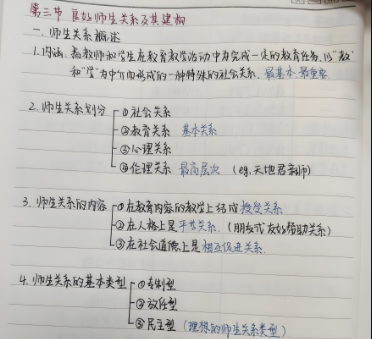 第三节 良好师生关系及其建构
一.师生关系概述
1.内涵:指教师和学生在教育教学活动中为完成一定的教育任务,以"教"
和"学"为中介而形成的一种特殊的社会关系.最基本 最重要
2.师生关系划分 ①社会关系
②教育关系 基本关系
③心理关系
④伦理关系 最高层次 (eg.天地君亲师)
3.师生关系的内容 ①在教育内容的教学上结成授受关系
②在人格上是平等关系.(朋友式友好帮助关系)
③在社会道德上是相互促进关系.
4.师生关系的基本类型 ①专制型
②放任型
③民主型(理想的师生关系类型)